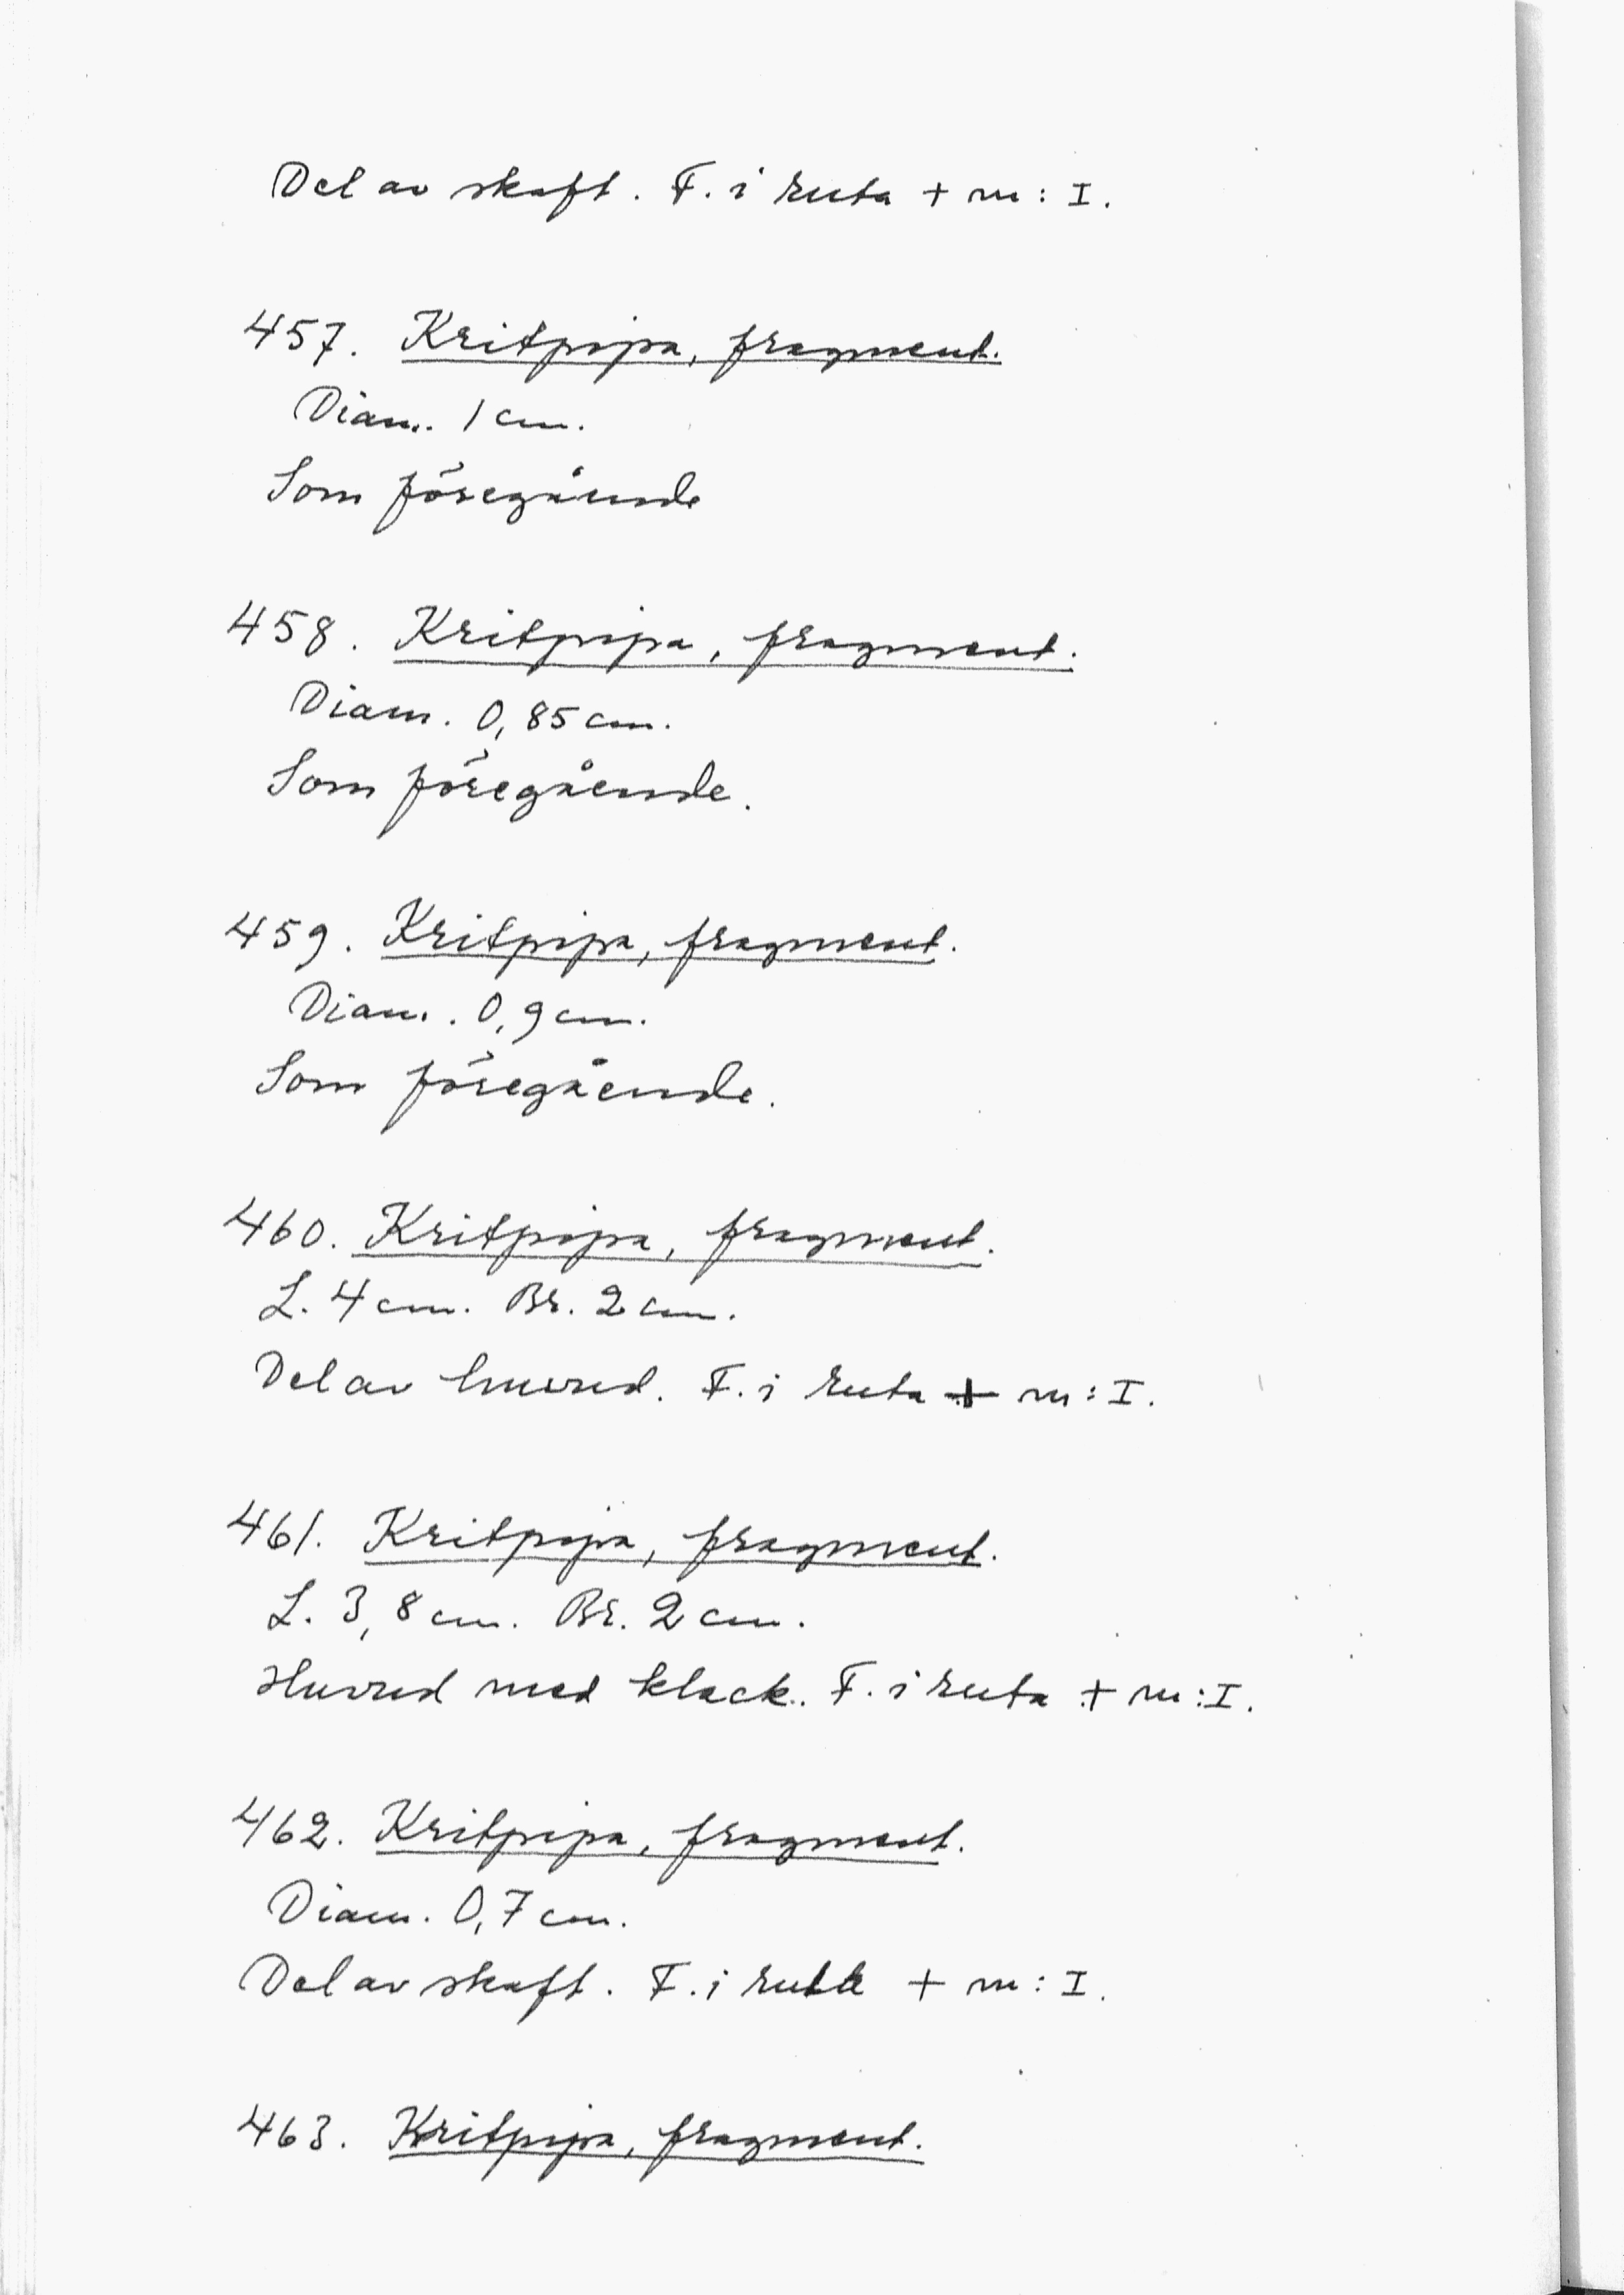 Del av skaft. F. i ruta + m: I.
457. Kritpipa, fragment.
Diam. 1 cm.
Som föregående
458. Kritpipa, fragment.
Diam. 0,85 cm.
Som föregående.
459. Kritpipa, fragment.
Diam. 0,9 cm.
Som föregående.
460. Kritpipa, fragment.
L. 4 cm. Br. 2 cm.
Del av huvud. F. i ruta + m: I.
461. Kritpipa, fragment.
L. 3,8 cm. Br. 2 cm.
Huvud med klack. F. i ruta + m: I.
462. Kritpipa, fragment.
Diam. 0,7 cm.
Del av skaft. F. i ruta + m: I.
463. Kritpipa, fragment.